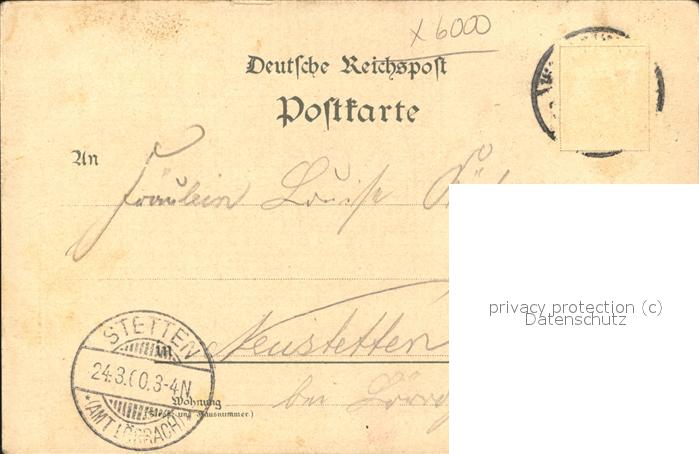 x 6000
Deutsche Reichspost
Postkarte
An
Fräulein Louise
privacy protection (c)
Datenschutz
STETTEN
24.3.00.3-4N
*(AMT LÖRRACH)*
in
Neustetten
Wohnung
(Straße und Hausnummer.)
bei Lörr